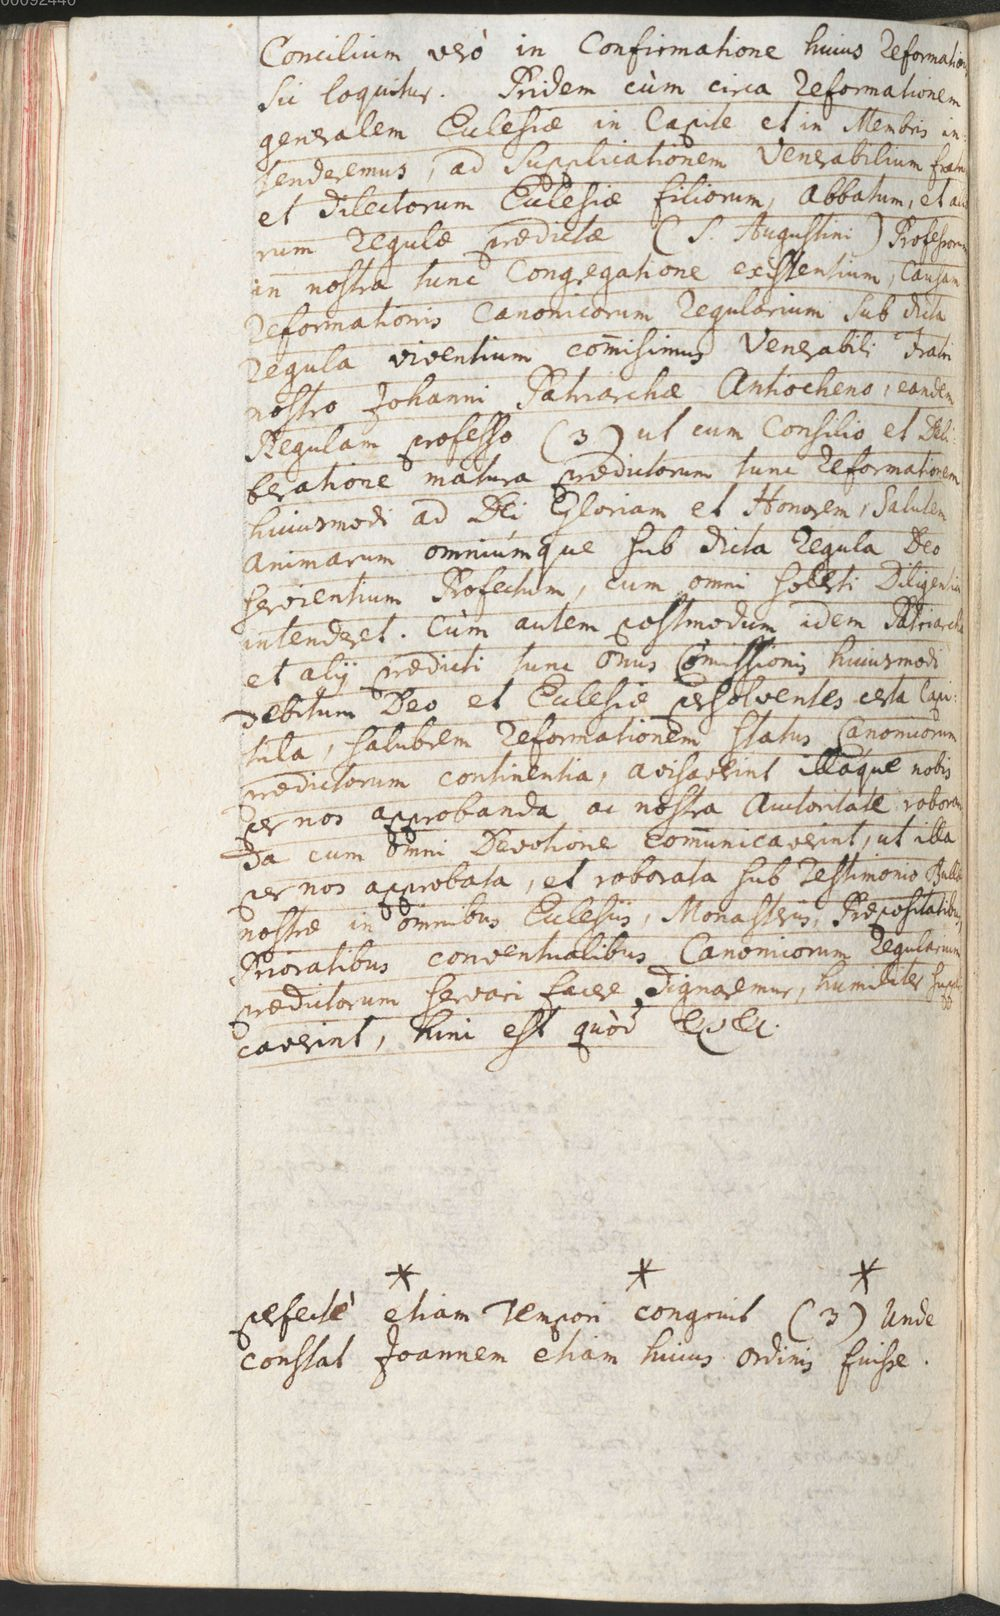 00092440
Concilium verò in Confirmatione huius Reformationis
sic loquitur. Pridem cùm circa Reformationem
generalem Ecclesiæ in Capite et in Membris in:
tenderemus, ad Supplicationem Venerabilium fratrum
et dilectorum Ecclesiæ filiorum, Abbatum, et alio
rum Regulæ prædictæ (S. Augustini) Professorum
in nostra tunc Congregatione existentium, Causam
Reformationis Canonicorum Regularium sub dicta
Regula viventium com̄isimus Venerabili Fratri
nostro Johanni Patriarchæ Antiocheno, eandem
Regulam professo (3) ut cum Consilio et Deli:
beratione matura prædictorum tunc Reformationem
huiusmodi ad Dei Gloriam et Honorem, Salutem
Animarum omniúmque sub dicta Regula Deo
servientium Profectum, cum omni solerti Diligentia
intenderet. Cùm autem postmodum idem Patriarcha
et alij prædicti tunc Onus Com̄issionis huiusmodi
debitum Deo et Ecclesiæ persolventes certa Capi:
tula, salubrem Reformationem status Canonicorum
prædictorum continentia, avisaverint illáque nobis
per nos approbanda ac nostra Auctoritate roboran
da cum omni Devotione com̄unicaverint, ut illa
per nos approbata, et roborata sub Testimonio Bullæ
nostræ in omnibus Eclesiis, Monasteriis, Præpositatibus,
Prioratibus conventualibus Canonicorum Regularium
prædictorum servari facere dignaremur, humiliter suppli
caverint, hinc est quòd &c &c.
* * *
perfectè etiam Tempori congruit (3) Unde
constat Joannem etiam huius ordinis fuisse.